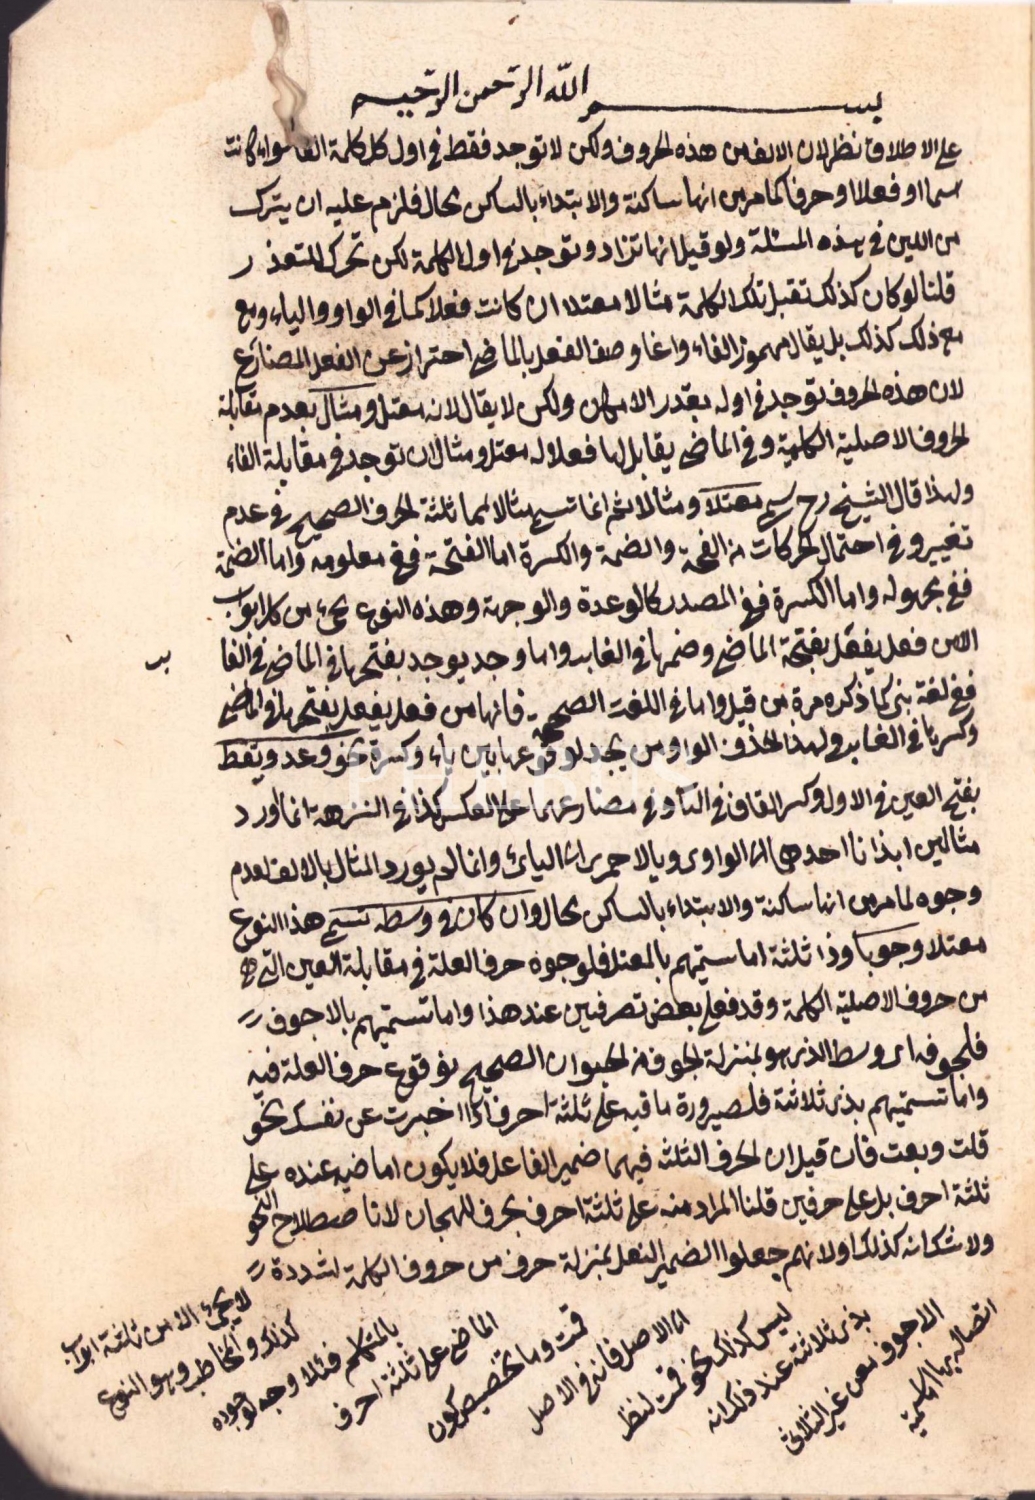 بسم الله الرحمن الرحيم
على الاطلاق نظر لان الالف من هذه الحروف ولكن لا توجد فقط في اول كل كلمة الفا سواء كانت
اسما او فعلا او حرفا كما مر من انها ساكنة والابتداء بالساكن محال فلزم عليه ان يترك
من اللين في هذه المسئلة ولو قيل انها تزاد وتوجد في اول الكلمة لكن تحرك للتعذر
قلنا لو كان كذلك تقبل تلك الكلمة مثالا معتلا ان كانت فعلا كما في الواو والياء ومع
مع ذلك كذلك بل يقال مهموز الفاء وانما وصف الفعل بالماضي احتراز عن الفعل المضارع
لان هذه الحروف توجد في اوله بقدر الامكان ولكن لا يقال لانه معتل ومثال بعدم مقابلة
الحروف الاصلية الكلمية وفي الماضي يقابل لها فعلا له معتل ومثال لان توجد في مقابلة الفاء
ولهذا قال الشيخ رح سمي معتلا ومثالا ثم انما تسمي مثالا لمماثلثة الحرف الصحيح في عدم
تغيير وفي احتمال الحركات من الفتحة والضمة والكسرة اما الفتحة ففي معلومه واما الضمة
ففي مجهوله واما الكسرة ففي المصدر كالوعدة والوجهة وهذه النوع يجئ من كل ابواب
الا من فعل يفعل بفتحة الماضي وضمها في الغابر واما وجد يوجد بفتحها في الماضي في الغا
بر
ففي لغة بني كما ذكره مرة من قيل واما في اللغت الصحيحة فانها من فعل يفعل بفتحها في الماضي
وكسرها في الغابر ولهذا الحذف الواو من يجد لوقوعها بين ياء وكسرة نحو وعد ويقظ
بفتح العين في الاول وكسر القاف في الثا وفي مضارعهما على العكس كذا في النزهة انما اورد
مثالين ايذانا احدهما الى الواوي وبالاحمرى الى اليائ وانما لم يورد المثال بالالف لعدم
وجوه لما مر من انها ساكنة والابتداء بالساكن محال وان كان في وسطه تسمى هذا النوع
معتلا وجوبا وذا ثلثة اما ستميهم بالمعتل فلوجوه حرف العلة في مقابلة العين التي هي
من حروف الاصلية الكلمة وقد فعل بعض تصرفين عند هذا واما تستميهم بالاجوف
فلجوفه اى وسط الذى هو بمنزلة الجوف من الحيوان الصحيح بوقوع حرف العلة فيه
واما تستميهم بذى ثلاثة فلصيرورة ما فيه على ثلثة احرف اذا اخبرت عن نفسك نحو
قلت وبعت فان قيل ان الحرف الثلثة فيهما ضمير الفاعل فلا يكون اما ضيه عنده على
ثلثة احرف بل على حرفين قلنا المراد منه على ثلثة احرف بحرف للهجان لانا صطلاح النحو
ولا شك انه كذلك اولا نهم جعلوا الضمير الفعل بمنزلة حرف من حروف الكلمة لشددة
اتصاله بها الكلمية
الاجوف من غير الثلاثى
بذى ثلاثة عند ذلك انه
ليس كذلك نحو قمت لنظر
الى الاصل فانه في الاصل
قمت وما تخصيص كون
الماضي على ثلثة احرف
بالمتكلم فثلا وجه لوجوده
كذلك والمخاطب وهو النوع
لا يجئ الا من ثلثة ابواب